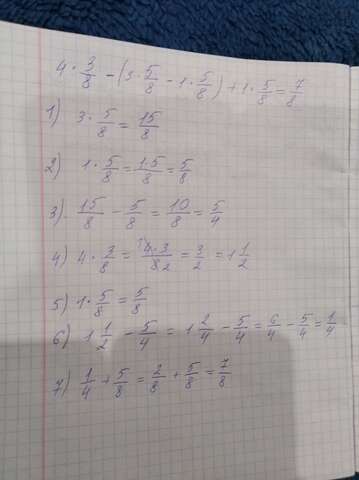 4 · 3/8 - (3 · 5/8 - 1 · 5/8) + 1 · 5/8 = 7/8
1) 3 · 5/8 = 15/8
2) 1 · 5/8 = 1·5/8 = 5/8
3) 15/8 - 5/8 = 10/8 = 5/4
4) 4 · 3/8 = ¹⁾4·3/8₂ = 3/2 = 1 1/2
5) 1 · 5/8 = 5/8
6) 1 1/2 - 5/4 = 1 2/4 - 5/4 = 6/4 - 5/4 = 1/4
7) 1/4 + 5/8 = 2/8 + 5/8 = 7/8